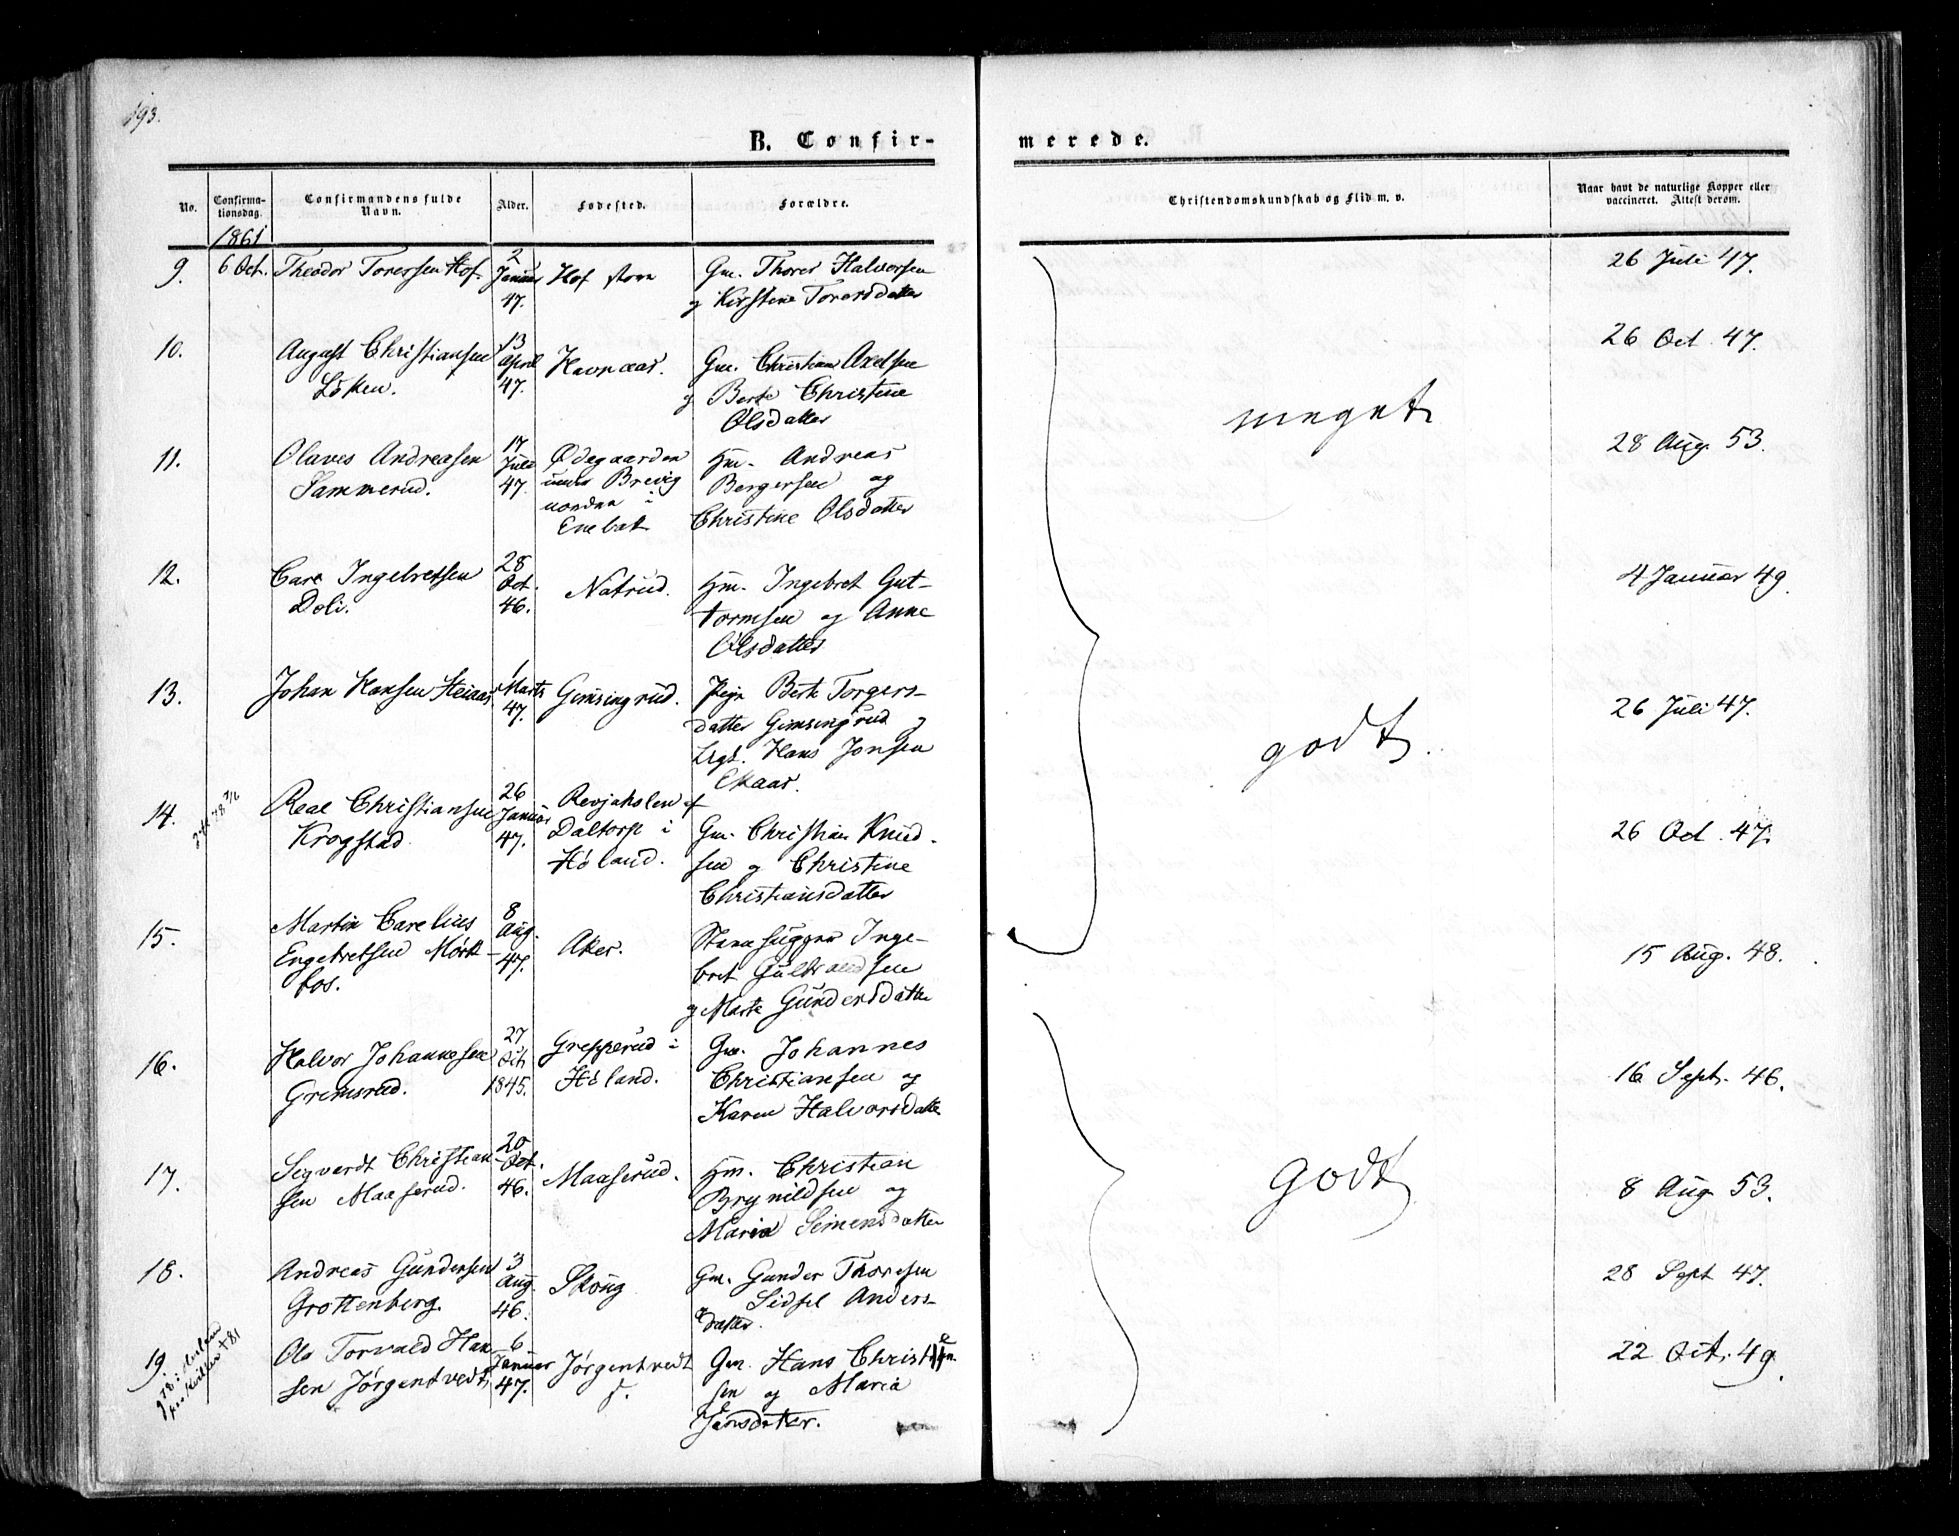 193.
B. Confir-
merede.
No.
Confirma-
tionsdag.
Confirmandens fulde
Navn.
Alder.
Fødested.
Forældre.
Christendomskundskab og Flid m. v.
Naar havt de naturlige Kopper eller
vaccineret. Attest derom.
1861
9. 6 Oct. Theodor Torersen Hof. 2 Januar 47. Hof store Gm. Thorer Halvorsen
og Kirstine Torersdatter
26 Juli 47.
10. August Christiansen
Løken.
13 April 47. Havnaas. Gm. Christian Axelsen
og Berte Christine
Olsdatter
26 Oct. 47.
meget
11. Olaves Andreasen
Sammerud.
17 Juli 47. Ødegaarden
under Brevig
nordre i
Enebak
Hm. Andreas
Bergersen og
Christine Olsdatter
28 Aug. 53.
12. Carl Ingebretsen
Doli.
28 Oct. 46. Natrud. Hm. Ingebret Gut-
tormsen og Anne
Olsdatter
4 Januar 49.
13. Johan Hansen 1 Marts 47. Gimsingrud. Pige Berte Torgers-
datter Gimsingrud og
Ugk. Hans Jonsen
Ekaas.
26 Juli 47.
godt.
14. Real Christiansen
Krogstad.
26 Januar 47. af
Daltorp i
Høland.
Gm. Christian Knud-
sen og Christine
Christiansdatter
26 Oct. 47.
15. Martin Carelius
Engebretsen Mørk-
fos.
8 Aug. 47. Aker. Stenhugger Inge-
bret Gulbrandsen
og Marte Gundersdatter
15 Aug. 48.
16. Halvor Johannesen
Grimsrud.
27 Oct. 1845. Grepperud i
Høland.
Gm. Johannes
Christiansen og
Karen Halvorsdatter
16 Sept. 46.
17. Sigvardt Christian-
sen Maaserud.
20 Oct. 46. Maaserud. Hm. Christian
Brynildsen og
Maria Simensdatter
8 Aug. 53.
godt
18. Andreas Gundersen
Grottenberg.
3 Aug. 46. Skoug Gm. Gunder Thoresen
og Sidsel Anders-
datter.
28 Sept 47.
19. Ole Torvald Han-
sen Jørgentvedt
6 Januar 47. Jørgentvedt Gm. Hans Christian-
sen og Maria
Jensdatter.
22 Oct. 49.